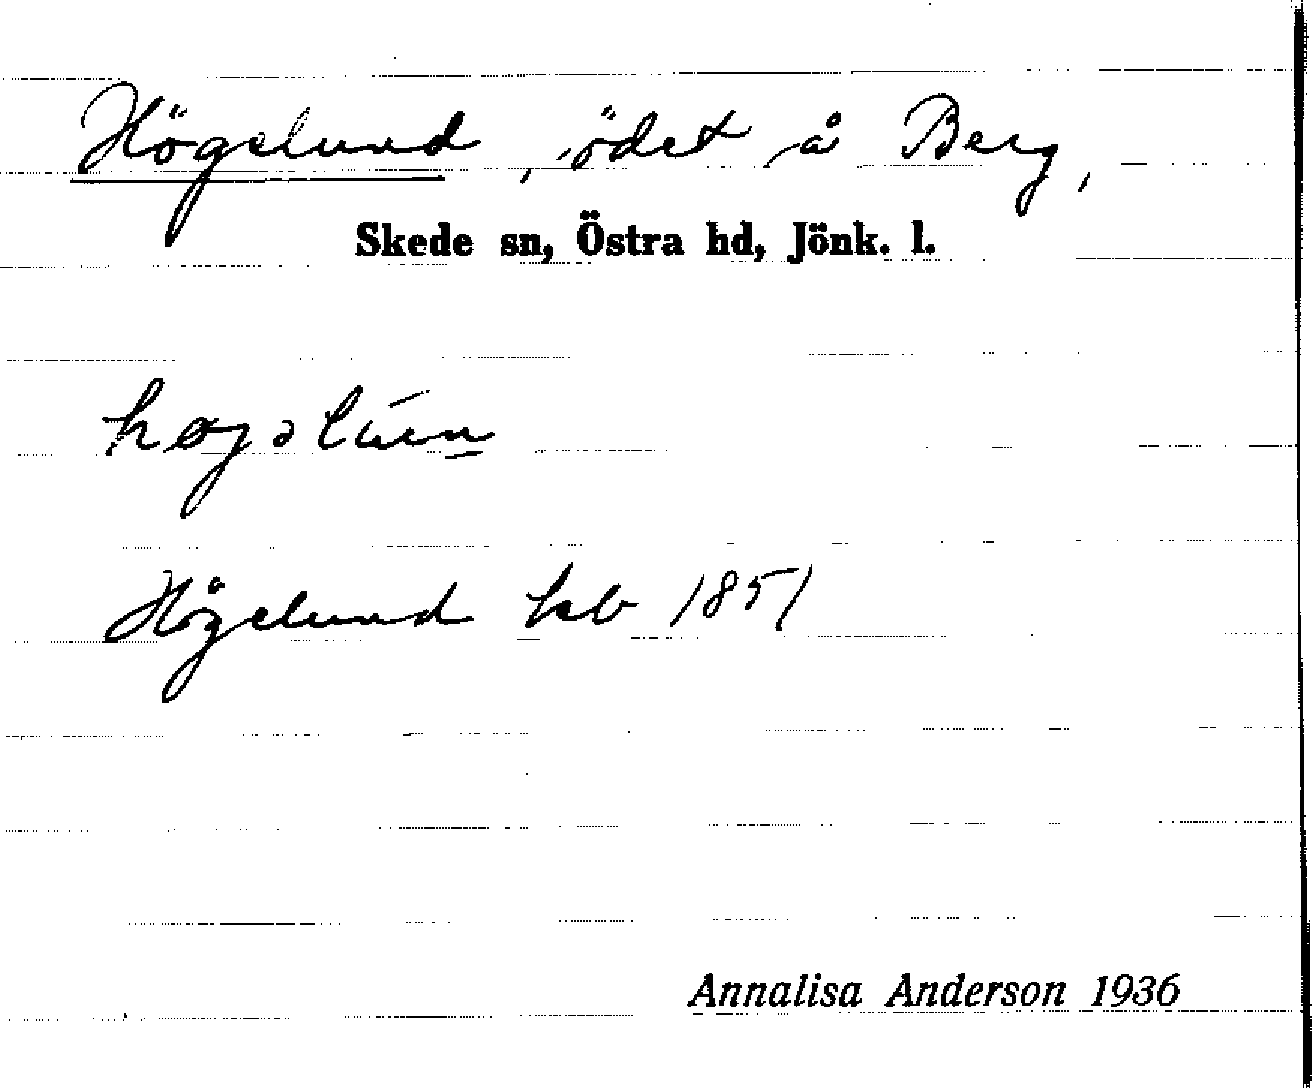 Högelund, ödet å Berg,
Skede sn, Östra hd, Jönk. l.
Högelund hb 1851
Annalisa Anderson 1936